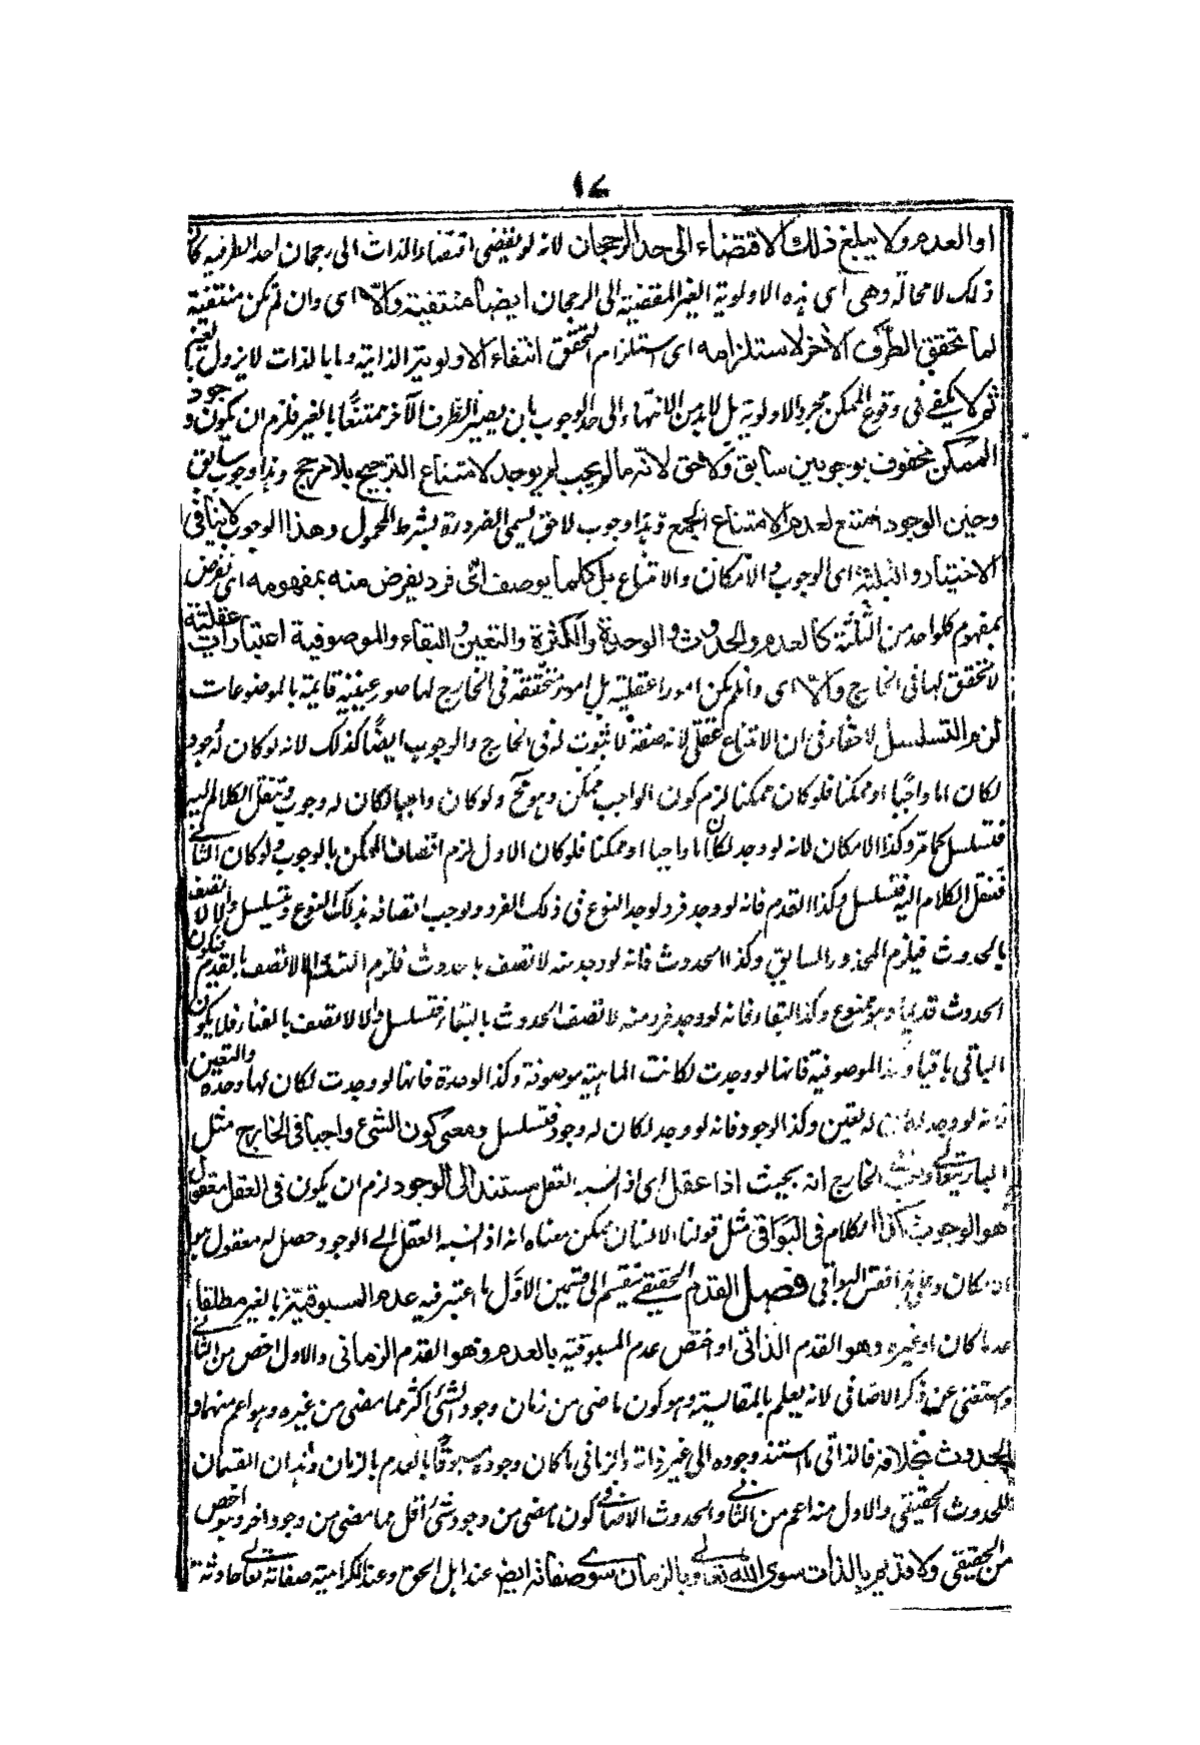 ١٧
او العدم ولا يبلغ ذلك الاقتضاء الى حد الرجحان لانه لو يفضى اقتضاء الذات الى رجحان احد الطرفين كان
ذلك لا محالة وهى اى هذه الاولوية الغير المفضية الى الرجحان ايضا منتفية والا اى وان لم تكن منتفية
لما تحقق الطرف الآخر لاستلزامه اى استلزام التحقق انتفاء الاولوية الذاتية وما بالذات لا يزول بالغير
ثم لا يكفى فى وقوع الممكن مجرد الاولوية بل لا بد من الانتهاء الى حد الوجوب بان يصير الطرف الآخر ممتنعا بالغير فلزم ان يكون وجود
الممكن محفوف بوجوبين سابق ولاحق لانه ما لم يجب لم يوجد لامتناع الترجيح بلا مرجح وهذا وجوب سابق
وحين الوجود امتنع لعدم الامتناع الجمع وهذا وجوب لاحق يسمى الضرورة بشرط المحمول وهذا الوجوب لا ينافى
الاختيار والثلثة اى الوجوب والامكان والامتناع بل كلما يوصف اىّ فرد يفرض منه بمفهومه اى يفرض
بمفهوم كلواحد من الثلثة كالعدم والحدوث والوحدة والكثرة والتعين والبقاء والموصوفية اعتبارات عقلية
لا تحقق لها فى الخارج والا اى وان لم يكن امورا عقلية بل امور متحققة فى الخارج لها صور عينية قايمة بالموضوعات
لزم التسلسل لا خفاء فى ان الامتناع عقلى لانه صفة لا ثبوت له فى الخارج والوجوب ايضا كذلك لانه لو كان له وجود
لكان اما واجبا او ممكنا فلو كان ممكنا لزم كون الواجب ممكن وهو مح ولو كان واجبا لكان له وجوب وننقل الكلام اليه
فتسلسل كما مر وكذا الامكان لانه لو وجد لكان اما واجبا او ممكنا فلو كان الاول لزم اتصاف الممكن بالوجوب ولو كان الثانى
فننقل الكلام اليه فتسلسل وكذا القدم فانه لو وجد فرد لوجد النوع فى ذلك الفرد ولوجب اتصافه بذلك النوع وتسلسل والا لاتصف
بالحدوث فيلزم المحذور السابق وكذا الحدوث فانه لو وجد منه لاتصف بحدوث فلزم التسلسل والا لاتصف بالقدم فيكون
الحدوث قديما وهو ممنوع وكذا البقاء فانه لو وجد فرد منه لاتصف الحدوث بالبقاء فتسلسل والا لاتصف بالفناء فلا يكون
الباقى باقيا وكذا الموصوفية فانها لو وجدت لكانت الماهية موصوفة وكذا الوحدة فانها لو وجدت لكان لها وحدة والتعين
فانه لو وجد لكان له تعين وكذا الوجود فانه لو وجد لكان له وجود فتسلسل ومعنى كون الشىء واجبا فى الخارج مثل
البارى تعالى الخارج انه بحيث اذا عقل اى اذا نسبه العقل مستندا الى الوجود لزم ان يكون فى العقل معقول
هو الوجوب كذا الكلام فى البواقى مثل قولنا الانسان ممكن معناه انه اذا نسبه العقل الى الوجود حصل له معقول هو
الامكان وعلى هذا فقس البواقى فصل القدم الحقيقى ينقسم الى قسمين الاول ما اعتبر فيه عدم المسبوقية بالغير مطلقا
عدما كان او غيره وهو القدم الذاتى او اختص عدم المسبوقية بالعدم وهو القدم الزمانى والاول اخص من الثانى
واستغنى عن ذكر الاضافى لانه يعلم بالمقايسة وهو كون ما مضى من زمان وجود الشئ اكثر مما مضى من غيره وهو اعم منهما و
الحدوث بخلافه فالذاتى ما استند وجوده الى غير ذاته والزمانى ما كان وجوده مسبوقا بالعدم بالزمان وهذان القسمان
للحدوث الحقيقى والاول منه اعم من الثانى والحدوث الاضافى كون ما مضى من وجود شئ اقل مما مضى من وجود آخر وهو اخص
من الحقيقى ولا قديم بالذات سوى الله تعالى وبالزمان سوى صفاته ايض عند اهل الحق وعند الكرامية صفاته تعالى حادثة